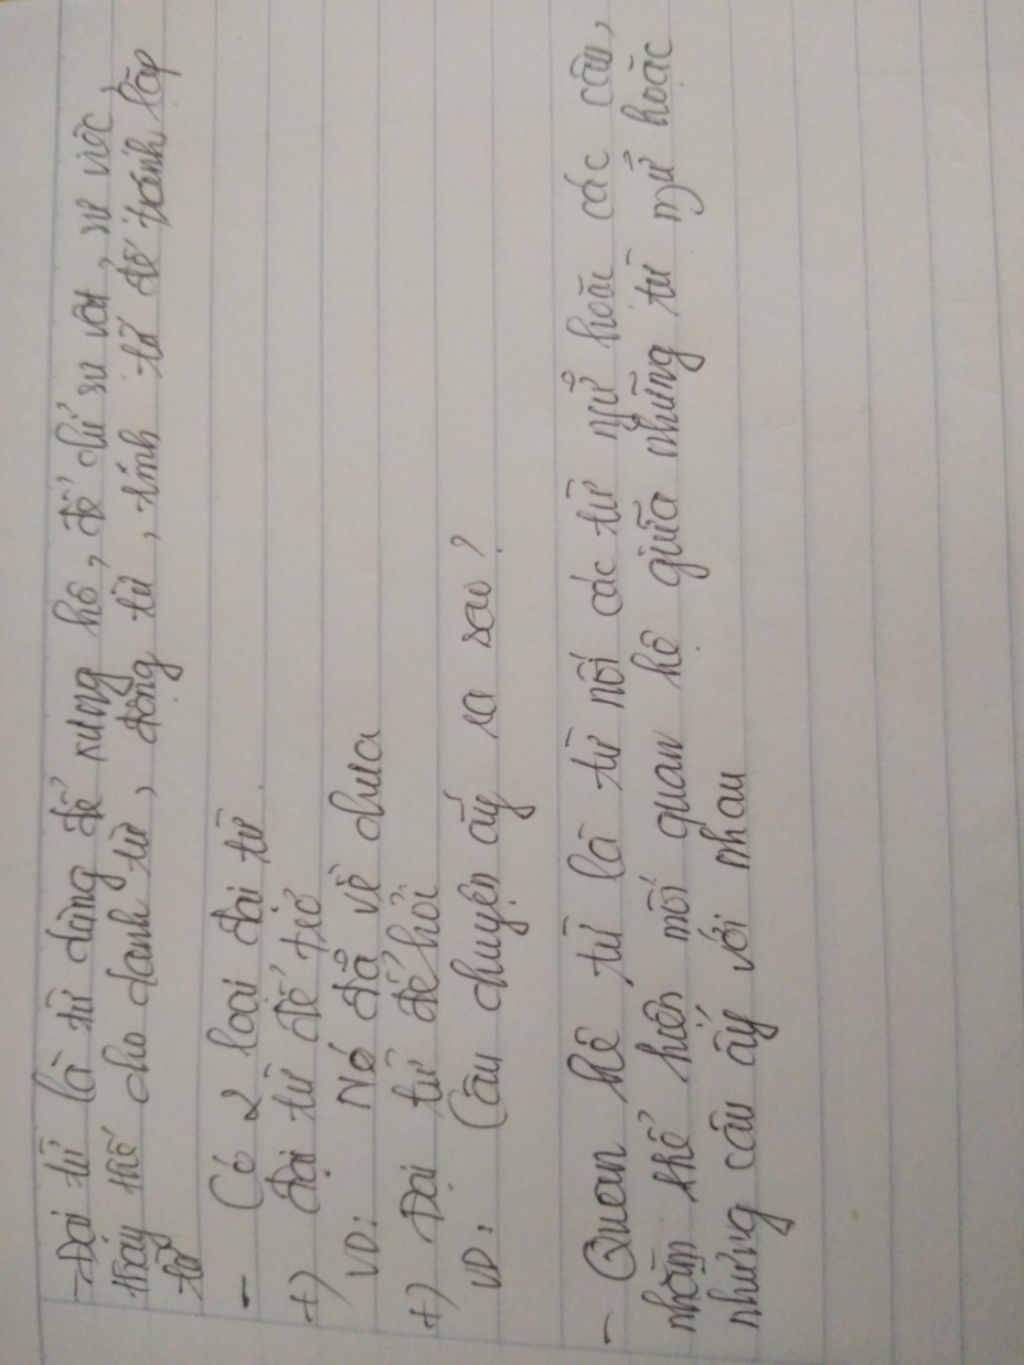 - Đại từ là từ dùng để xưng hô, để chỉ sự vật, sự việc,
thay thế cho danh từ, động từ, tính từ để tránh lặp
từ
- Có 2 loại đại từ.
+) Đại từ để trỏ
VD: Nó đã về chưa
+) Đại từ để hỏi
VD: Câu chuyện ấy ra sao?
- Quan hệ từ là từ nối các từ ngữ hoặc các câu,
nhằm thể hiện mối quan hệ giữa những từ ngữ hoặc
những câu ấy với nhau